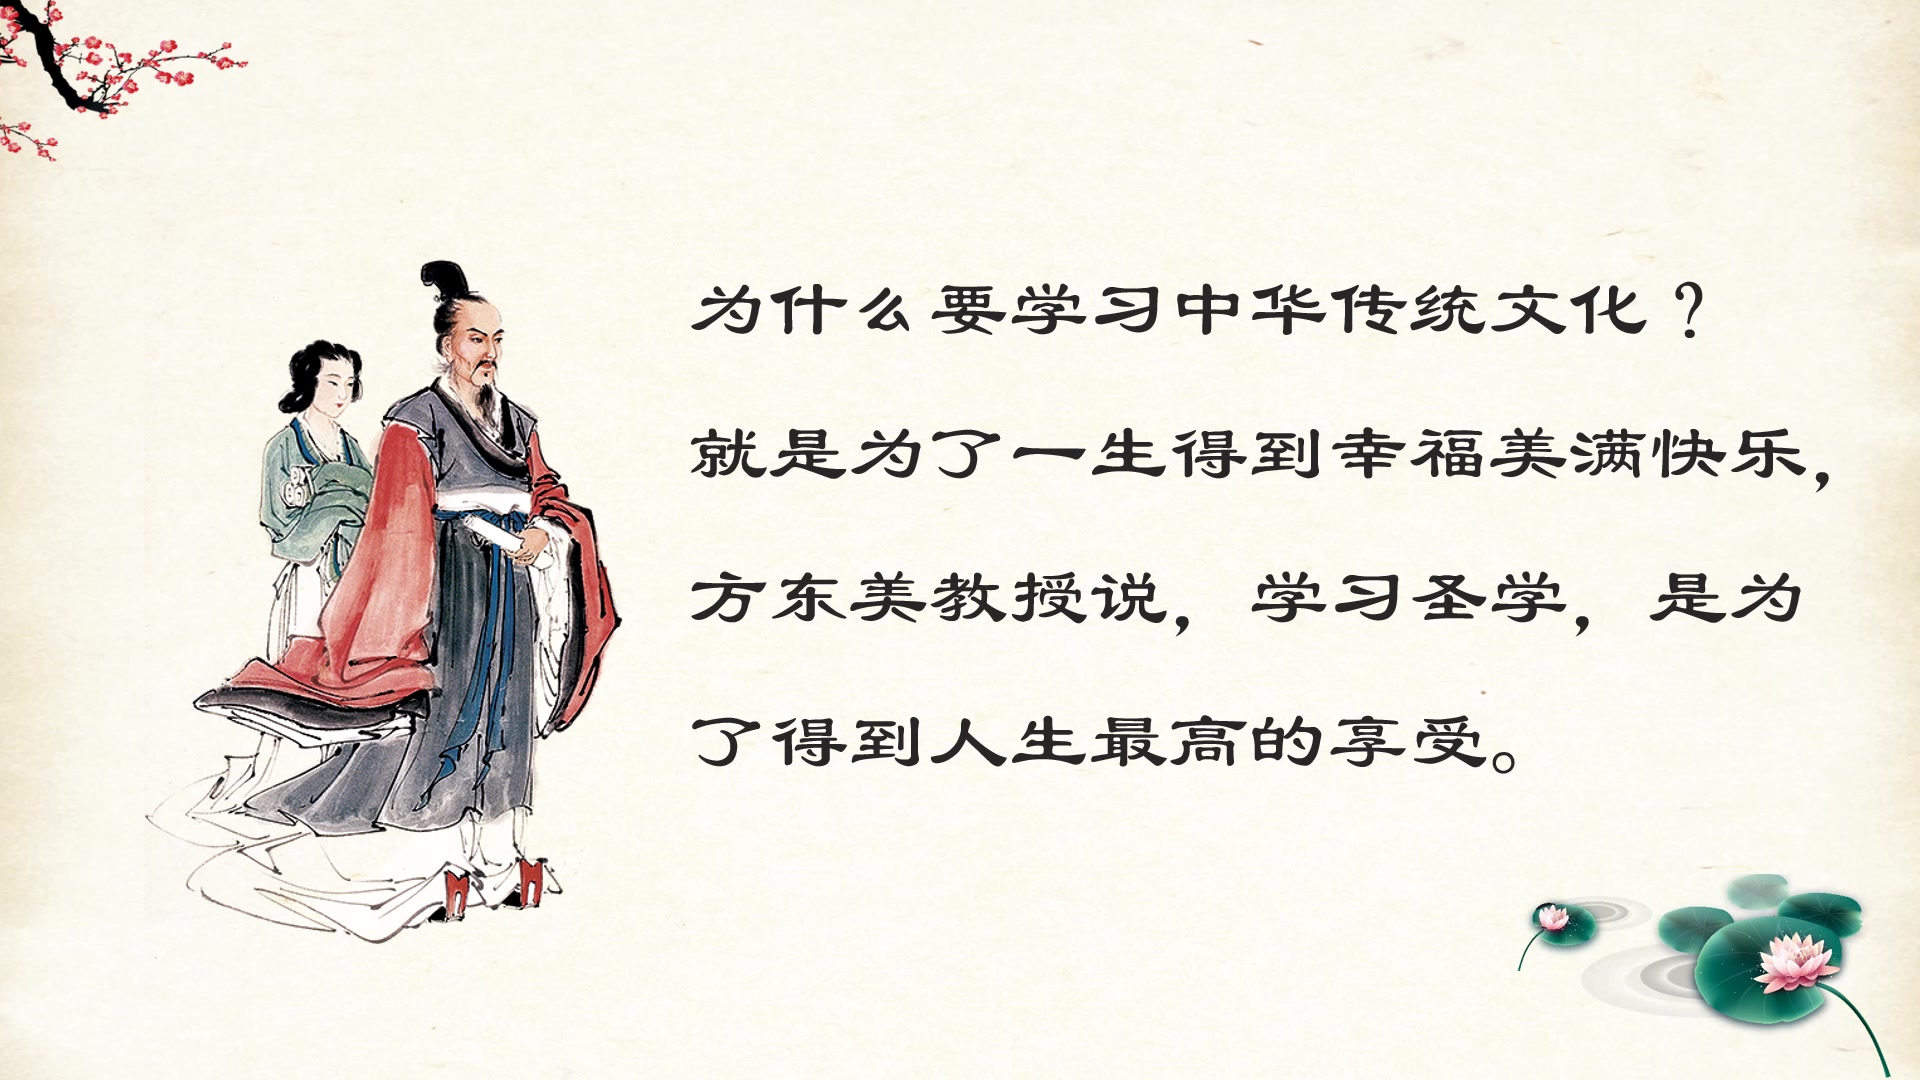 为什么要学习中华传统文化？
就是为了一生得到幸福美满快乐，
方东美教授说，学习圣学，是为
了得到人生最高的享受。